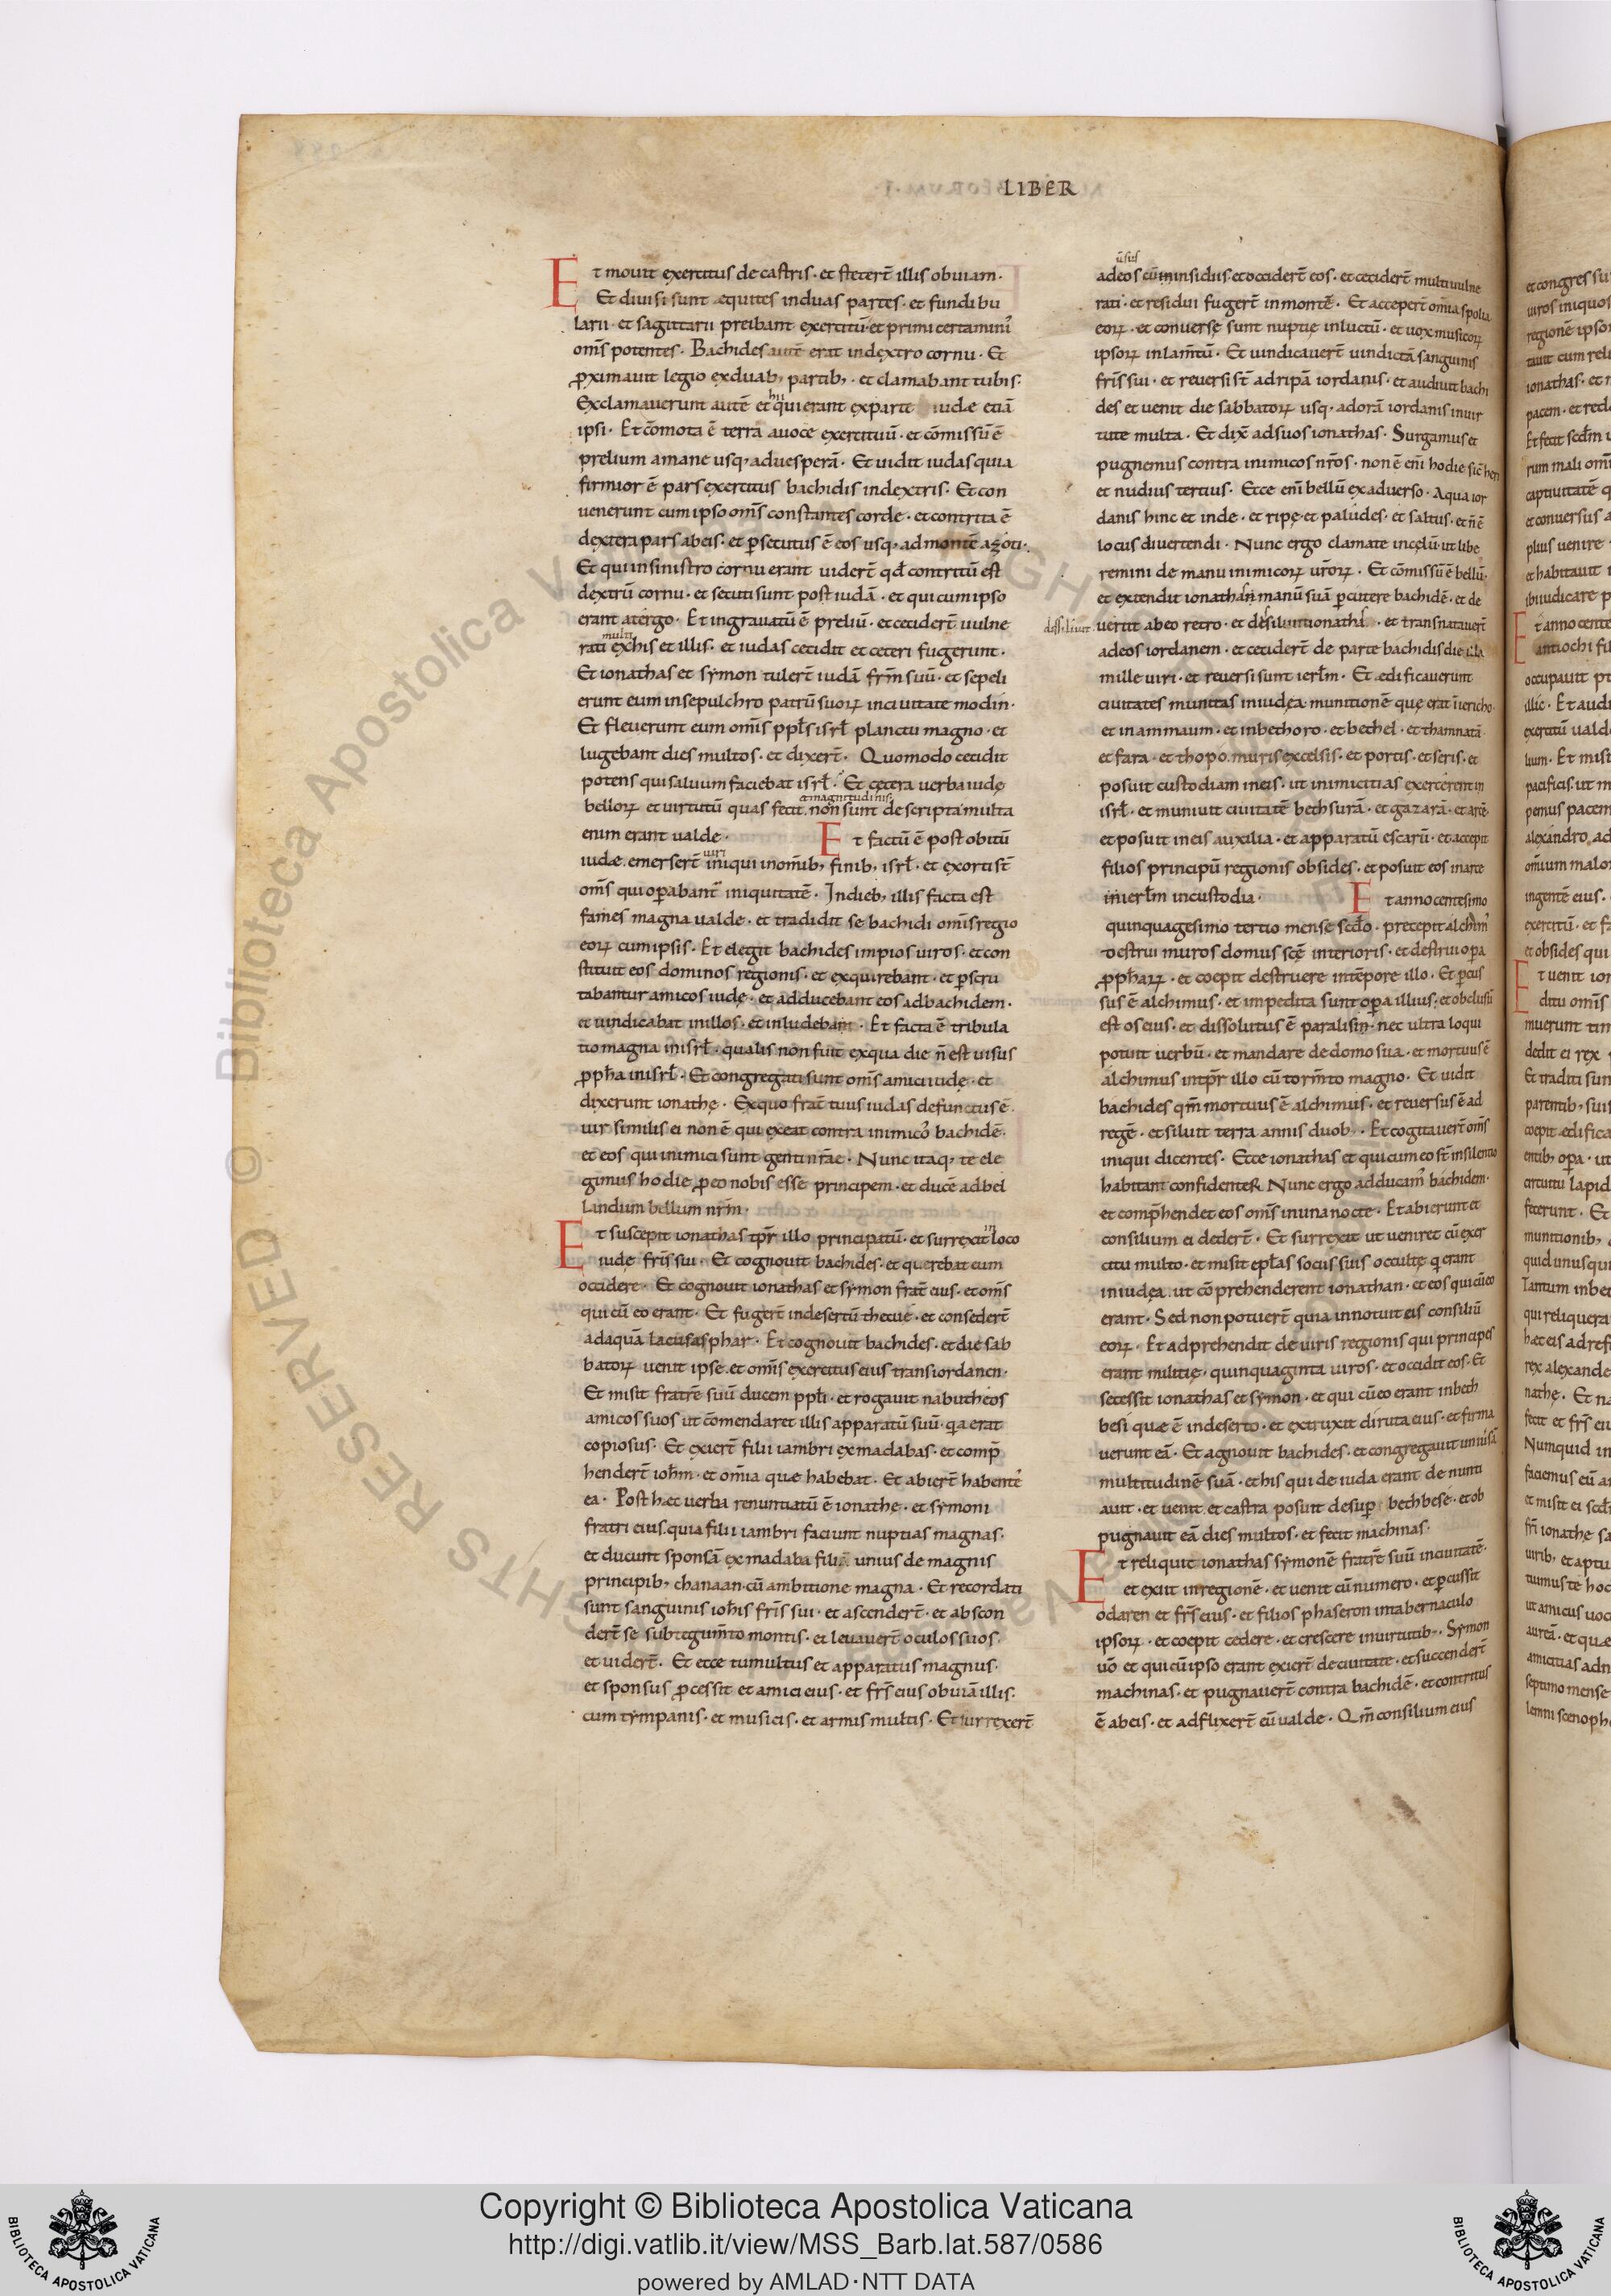 LIBER
Et mouit exercitus de castris · et steter̄t illis obuiam ·
Et diuisi sunt aequites induas partes · et fundibu
larii · et sagittarii preibant exercitū et primi certamini᾽
om̄s potentes · Bachides autē erat indextro cornu · Et
ꝓximauit legio exduab; partib; · et clamabant tubis ·
hii
Exclamauerunt autē et qui erant exparte iudae etiā
ipsi · Et cōmota ē terra auoce exercituū · et cōmissū ē
prelium amane usq; aduesperā · Et uidit iudas quia
firmior ē pars exercitus bachidis indextris · Et con
uenerunt cum ipso om̄s constantes corde · et contrita ē
dextera pars abeis · et ꝑsecutus ē eos usq; ad montē azoti ·
Et qui insinistro cornu erant uider̄t qđ contritū est
dextrū cornu · et secuti sunt post iudā · et qui cum ipso
erant atergo · Et ingrauatū ē preliū · et cecider̄t uulne
multi
rati exhis et illis · et iudas cecidit et ceteri fugerunt ·
Et ionathas et symon tuler̄t iudā fr̄m suū · et sepeli
erunt eum insepulchro patrū suoꝝ inciuitate modin ·
Et fleuerunt eum om̄s ppl̄s isrł planctu magno · et
lugebant dies multos · et dixer̄t · Quomodo cecidit
potens qui saluum faciebat isrł · Et cetera uerba iudę
et magnitudinis
belloꝝ et uirtutū quas fecit non sunt descripta multa
enim erant ualde ·
Et factū ē post obitū
uiri
iudae emerser̄t iniqui inom̄ib; finib; isrł · et exorti st̄
om̄s qui oꝑabant᾽ iniquitatē · Indieb; illis facta est
fames magna ualde · et tradidit se bachidi om̄s regio
eoꝝ cum ipsis · Et elegit bachides impios uiros · et con
stituit eos dominos regionis · et exquirebant · et ꝑscru
tabantur amicos iudę · et adducebant eos adbachidem ·
et uindicabat inillos · et inludebat · Et facta ē tribula
tio magna inisrł · qualis non fuit exqua die n̄ est uisus
ꝓpħa inisrł · Et congregati sunt om̄s amici iudę · et
dixerunt ionathę · Exquo frat̄ tuus iudas defunctus ē ·
uir similis ei non ē qui exeat contra inimico᾽ bachidē ·
et eos qui inimici sunt genti nr̄ae · Nunc itaq; te ele
gimus hodie ꝓeo nobis esse principem · et ducē adbel
landum bellum nr̄m ·
in
Et suscepit ionathas tp̄r illo principatū · et surrexit loco
iudę fr̄is sui · Et cognouit bachides · et querebat eum
occidere · Et cognouit ionathas et symon frat̄ eius · et om̄s
qui cū eo erant · Et fuger̄t indesertū thecue · et conseder̄t
adaquā lacus asphar · Et cognouit bachides · et die sab
batoꝝ uenit ipse et om̄s exercitus eius trans iordanen ·
Et misit fratrē suū ducem ppłi · et rogauit nabutheos
amicos suos ut cōmendaret illis apparatū suū · q̄a erat
copiosus · Et exier̄t filii iambri exmadabas · et comp̄
hender̄t ioħm · et om̄ia quae habebat · Et abier̄t habente᾽
ea · Post haec uerba renuntiatū ē ionathę · et symoni
fratri eius quia filii iambri faciunt nuptias magnas ·
et ducunt sponsā exmadaba filiā unius de magnis
principib; chanaan · cū ambitione magna · Et recordati
sunt sanguinis ioħis fr̄is sui · et ascender̄t · et abscon
der̄t se subtegum̄to montis · et leuauer̄t oculos suos ·
et uider̄t · Et ecce tumultus et apparatus magnus ·
et sponsus ꝓcessit et amici eius · et fr̄s eius obuiā illis ·
cum tympanis · et musicis · et armis multis · Et surrexer̄t
adeos cū ininsidiis · et occider̄t eos · et cecider̄t multi uulne
rati · et residui fuger̄t inmontē · Et acceper̄t om̄ia spolia
eoꝝ · et conuersę sunt nuptię inluctū · et uox musicoꝝ
ipsoꝝ inlam̄tū · Et uindicauer̄t uindictā sanguinis
fr̄is sui · et reuersi st̄ adripā iordanis · et audiuit bachi
des et uenit die sabbatoꝝ usq; adorā iordanis inuir
tute multa · Et dix̄ adsuos ionathas · Surgamus et
pugnemus contra inimicos nr̄os · non ē eni᾽ hodie sic̄ heri
et nudius tertius · Ecce eni᾽ bellū exaduerso · Aqua ior
danis hinc et inde · et ripę et paludes · et saltus · et n̄ ē
locus diuertendi · Nunc ergo clamate incęlū · ut libe
remini de manu inimicoꝝ ur̄oꝝ · Et cōmissū ē bellū ·
et extendit ionathan manū suā ꝑcutere bachidē · et de
uertit abeo retro · et desiluit ionathas · et transnatauer̄t
adeos iordanem · et cecider̄t de parte bachidis die illa
mille uiri · et reuersi sunt ierłm · Et aedificauerunt
ciuitates munitas iniudęa munitionē quę erat iniericho
et inammaum · et inbethoro · et bethel · et thamnatā ·
et fara · et thopo muris excelsis · et portis · et seris · et
posuit custodiam ineis · ut inimicitias exercerent in
isrł · et muniuit ciuitatē bethsurā · et gazarā · et arcē ·
et posuit ineis auxilia · et apparatū escarū · et accepit
filios principū regionis obsides · et posuit eos inarce
inierłm incustodia ·
Et anno centesimo
quinquagesimo tertio mense secđo · precepit alchim᾽
destrui muros domus scę̄ interioris · et destrui oꝑa
ꝓpħaꝝ · et coepit destruere intēpore illo · Et ꝑcus
sus ē alchimus · et impedita sunt oꝑa illius · et obclusū
est os eius · et dissolutus ē paralisin · nec ultra loqui
potuit uerbū · et mandare de domo sua · et mortuus ē
alchimus intp̄r illo cū torm̄to magno · Et uidit
bachides qm̄ mortuus ē alchimus · et reuersus ē ad
regē · et siluit terra annis duob; · Et cogitauer̄t om̄s
iniqui dicentes · Ecce ionathas et qui cum eo st̄ insilentio
habitant confidenter Nunc ergo adducam᾽ bachidem ·
et comp̄hendet eos om̄s inuna nocte · Et abierunt et
consilium ei deder̄t · Et surrexit ut ueniret cū exer
citu multo · et misit epłas sociis suis occultę q̄ erant
iniudęa ut cōprehenderent ionathan · et eos qui cū eo
erant · Sed non potuer̄t quia innotuit eis consiliū
eoꝝ · Et adprehendit de uiris regionis qui principes
erant militię · quinquaginta uiros · et occidit eos · Et
secessit ionathas et symon · et qui cū eo erant inbeth
besi quae ē indeserto · et extruxit diruta eius · et firma
uerunt eā · Et agnouit bachides · et congregauit uniuersā
multitudinē suā · et his qui de iuda erant denunti
auit · et uenit et castra posuit desuꝑ bethbese · et ob
pugnauit eā dies multos · et fecit machinas ·
Et reliquit ionathas symonē fratrē suū inciuitatē ·
et exiit inregionē · et uenit cū numero · et ꝑcussit
odaren et fr̄s eius · et filios phaseron intabernaculo
ipsoꝝ · et coepit cedere · et crescere inuirtutib; · Symon
uo᾽ et qui cū ipso erant exier̄t de ciuitate · et succender̄t
machinas · et pugnauer̄t contra bachidē · et contritus
ē abeis · et adflixer̄t eū ualde · Qm̄ consilium eius
Copyright © Biblioteca Apostolica Vaticana
http://digi.vatlib.it/view/MSS_Barb.lat.587/0586
powered by AMLAD·NTT DATA
BIBLIOTECA APOSTOLICA VATICANA
BIBLIOTECA APOSTOLICA VATICANA